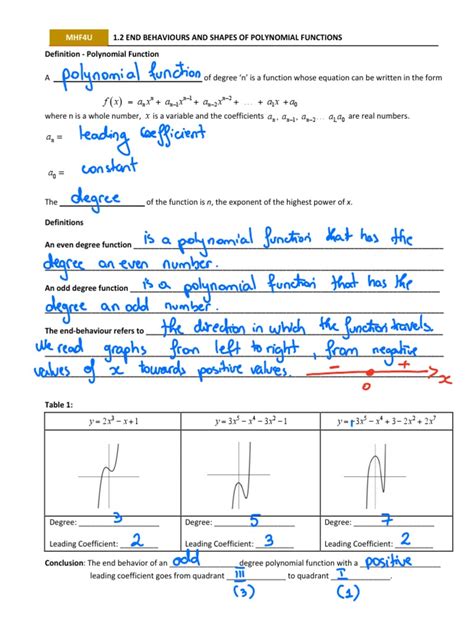 MHF4U 1.2 END BEHAVIOURS AND SHAPES OF POLYNOMIAL FUNCTIONS
Definition - Polynomial Function
A polynomial function of degree 'n' is a function whose equation can be written in the form
f(x) = aₙxⁿ + aₙ₋₁xⁿ⁻¹ + aₙ₋₂xⁿ⁻² + ... + a₁x + a₀
where n is a whole number, x is a variable and the coefficients aₙ, aₙ₋₁, aₙ₋₂ ... a₁a₀ are real numbers.
aₙ = leading coefficient
a₀ = constant
The degree of the function is n, the exponent of the highest power of x.
Definitions
An even degree function is a polynomial function that has the
degree an even number.
An odd degree function is a polynomial function that has the
degree an odd number.
The end-behaviour refers to the direction in which the function travels.
We read graphs from left to right, from negative
values of x towards positive values.
− + x
0
Table 1:
y = 2x³ − x + 1 y = 3x⁵ − x⁴ − 3x² − 1 y = 3x⁵ − x⁴ + 3 − 2x² + 2x⁷
Degree: 3 Degree: 5 Degree: 7
Leading Coefficient: 2 Leading Coefficient: 3 Leading Coefficient: 2
Conclusion: The end behavior of an odd degree polynomial function with a positive
leading coefficient goes from quadrant III to quadrant I
(3) (1)